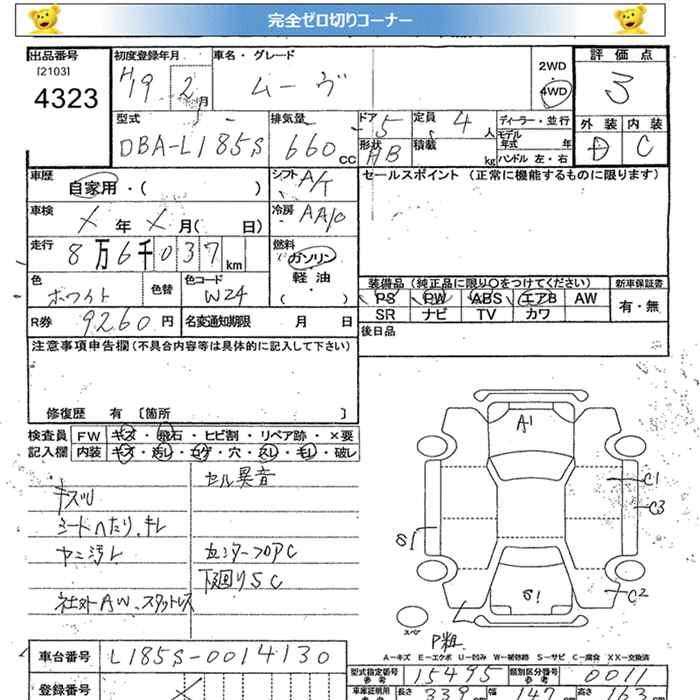 完全ゼロ切りコーナー
出品番号 初度登録年月 車名・グレード 評価点
[2103]
4323 H19 2月 ムーヴ 2WD 4WD 3
型式 排気量 ドア 5 定員 4人 ディーラー・並行 外装 内装
DBA-L185S 660cc 形状 HB 積載 kg モデル年式 年 D C
ハンドル 左・右
車歴 シフト A/T セールスポイント (正常に機能するものに限ります)
自家用・( )
車検 冷房 AAC
X年 X月( 日)
走行 燃料
8万6千037km ガソリン
軽油
・
( )
色 色替 色コード 装備品 (純正品に限り○をつけてください) 新車保証書
ホワイト W24 PS PW ABS エアB AW 有・無
SR ナビ TV カワ
R券 9260円 名変通知期限 月 日 後日品
注意事項申告欄 (不具合内容等は具体的に記入して下さい)
修復歴 有 [箇所 ]
検査員 FW キズ・飛石・ヒビ割・リペア跡・×要
記入欄 内装 キズ・汚レ・コゲ・穴・スレ・モレ・破レ
キズU セル異音
シートへたり、キレ
ヤニ汚レ センターフロアC
下廻りSC
社外AW、スタットレス
A1
C1
C3
S1
C2
S1
スペア
P粗
A-キズ E-エクボ U-凹み W-補修跡 S-サビ C-腐食 XX-交換済
車台番号 L185S-0014130
型式指定番号 15495 類別区分番号 0011
参考 参考
登録番号 車庫証明用 長さ 339 幅 147 高さ 163